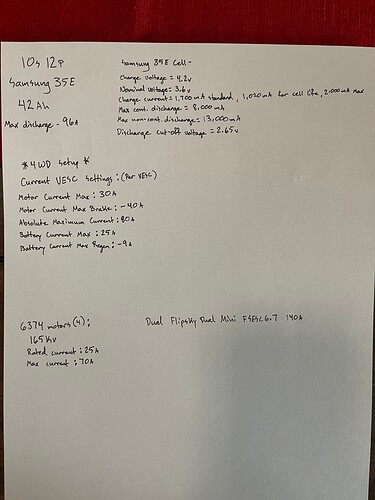 10s 12p
Samsung 35E
42 Ah
Max discharge - 96A
Samsung 35E Cell -
Charge voltage = 4.2v
Nominal voltage = 3.6v
Charge current = 1,700 mA standard, 1,020 mA for cell life, 2,000 mA max
Max cont. discharge = 8,000 mA
Max non-cont. discharge = 13,000 mA
Discharge cut-off voltage = 2.65v
* 4WD setup *
Current VESC settings: (Per VESC)
Motor Current Max: 30A
Motor Current Max Brake: -40A
Absolute Maximum Current: 80A
Battery Current Max: 25A
Battery Current Max Regen: -9A
6374 motors (4):
165 Kv
Rated current: 25A
Max current: 70A
Dual Flipsky Dual Mini FSESC6.7 140A